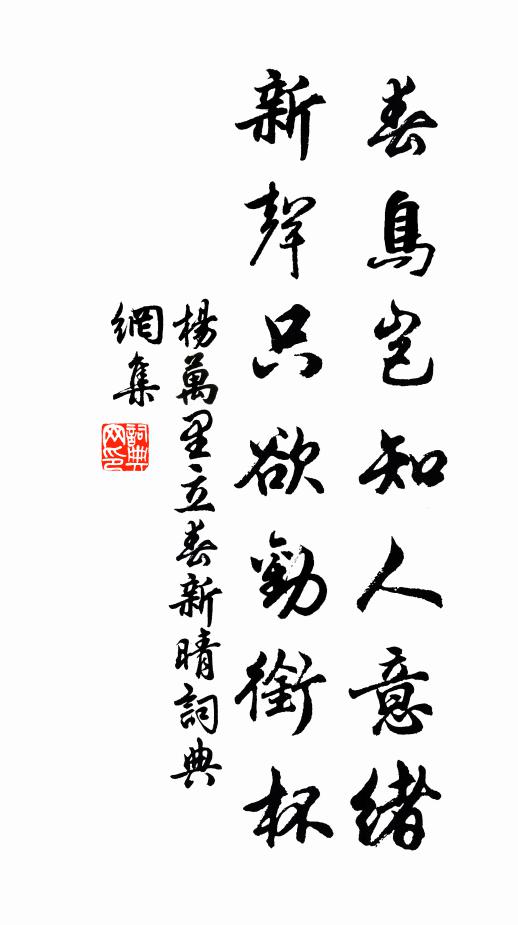 春鳥岂知人意緒
新聲只欲勸銜杯
楊萬里立春新晴詞典
網集
詞典
网印